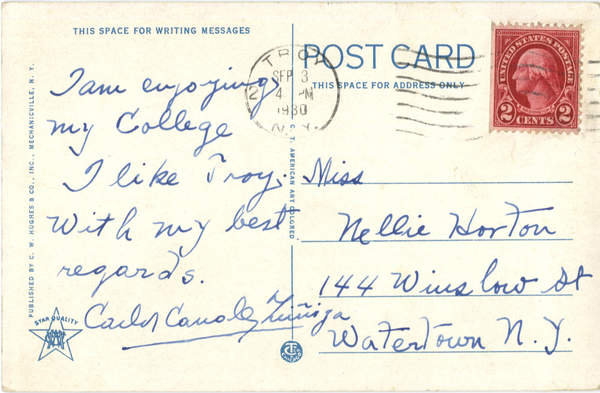 THIS SPACE FOR WRITING MESSAGES
I am enjoying
my College
I like Troy.
With my best
regards.
Carlos Zúñiga
PUBLISHED BY C. W. HUGHES & CO., INC., MECHANICVILLE, N. Y.
STAR QUALITY
C. T. AMERICAN ART COLORED
POST CARD
THIS SPACE FOR ADDRESS ONLY
TROY
SEP 3
4 PM
1930
N.Y.
UNITED STATES POSTAGE
2 CENTS 2
Miss
Nellie Horton
144 Winslow St
Watertown N.Y.